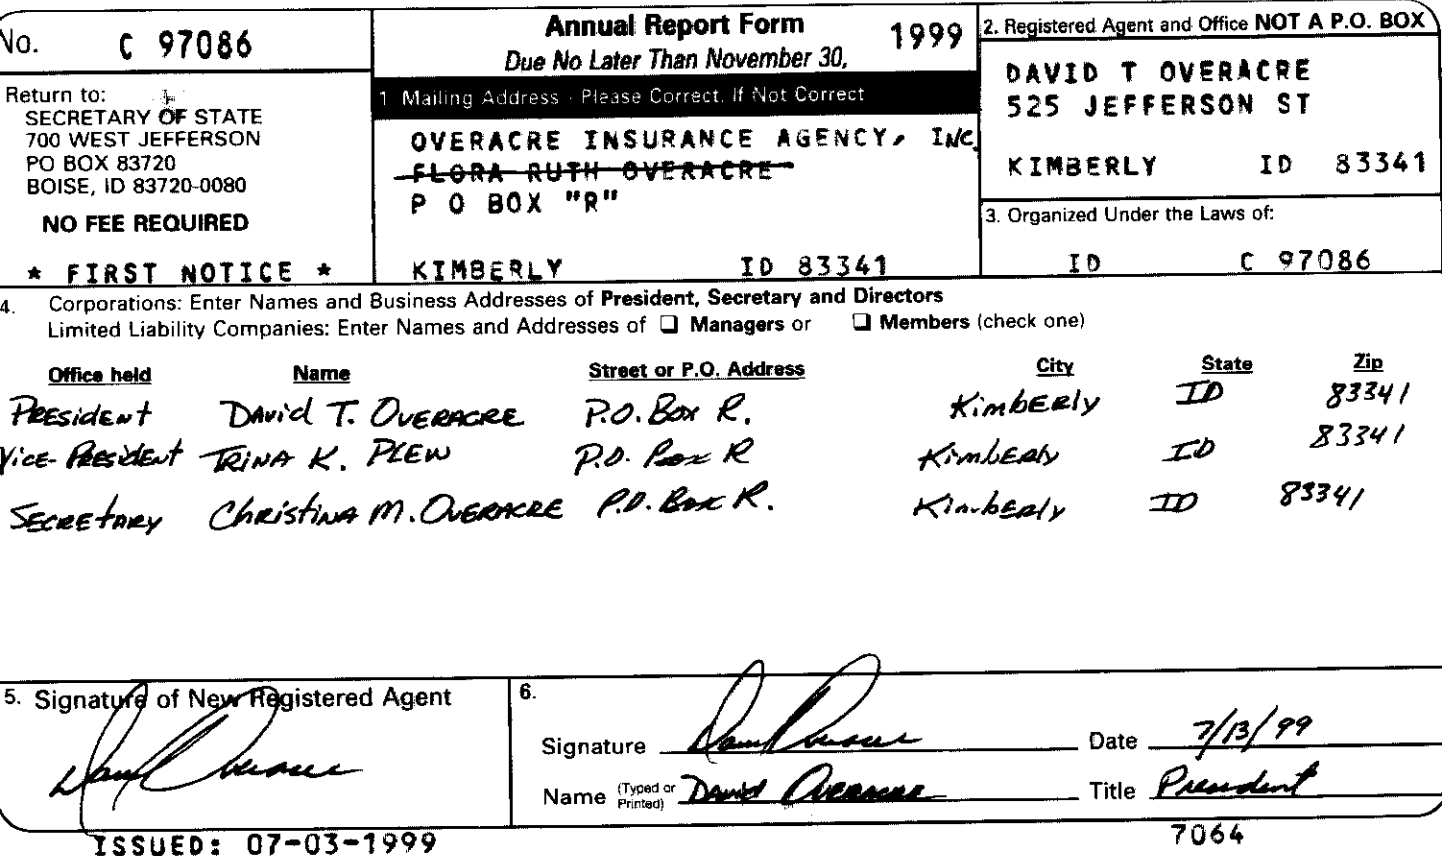 No. C 97086
Return to:
SECRETARY OF STATE
700 WEST JEFFERSON
PO BOX 83720
BOISE, ID 83720-0080
NO FEE REQUIRED
* FIRST NOTICE *
Annual Report Form 1999
Due No Later Than November 30,
1 Mailing Address - Please Correct, If Not Correct
OVERACRE INSURANCE AGENCY, INC.
FLORA RUTH OVERACRE
P O BOX "R"
KIMBERLY ID 83341
2. Registered Agent and Office NOT A P.O. BOX
DAVID T OVERACRE
525 JEFFERSON ST
KIMBERLY ID 83341
3. Organized Under the Laws of:
ID C 97086
4. Corporations: Enter Names and Business Addresses of President, Secretary and Directors
Limited Liability Companies: Enter Names and Addresses of ❑ Managers or ❑ Members (check one)
Office held Name Street or P.O. Address City State Zip
President David T. Overacre P.O. Box R. Kimberly ID 83341
Vice-President Trina K. Plew P.O. Box R Kimberly ID 83341
Secretary Christina M. Overacre P.O. Box R. Kimberly ID 83341
5. Signature of New Registered Agent
David Overacre
6.
Signature David Overacre Date 7/13/99
Name (Typed or Printed) David Overacre Title President
ISSUED: 07-03-1999
7064